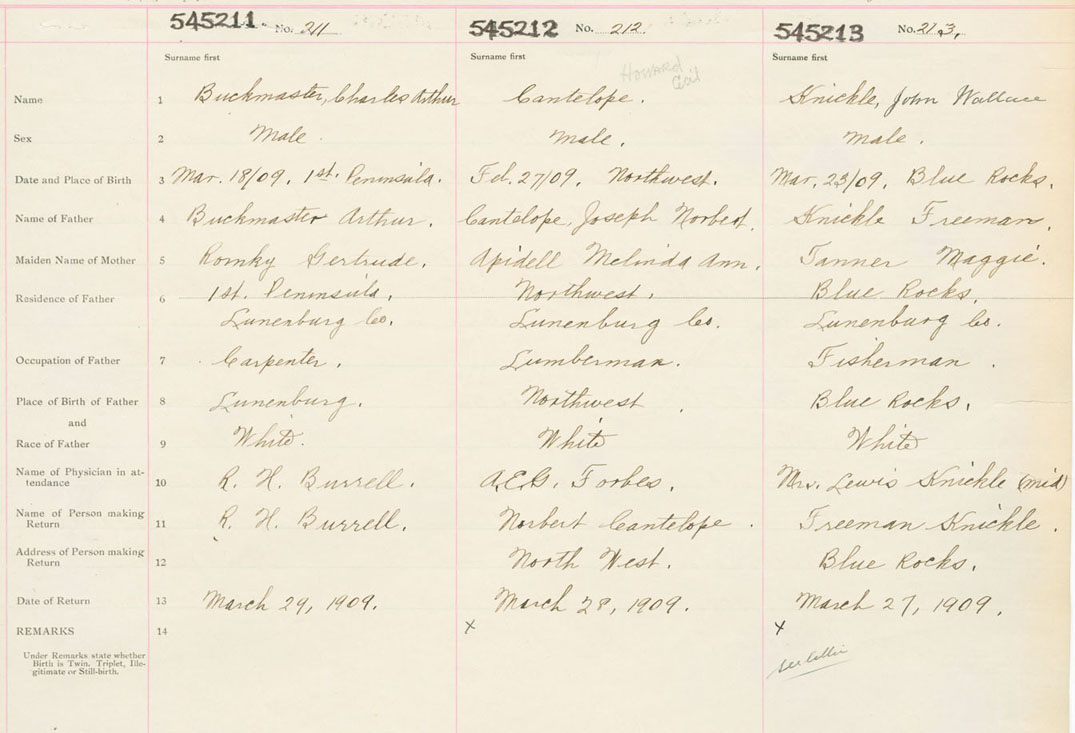 545211 No. 211 545212 No. 212. 545213 No. 213.
Surname first Surname first Surname first
Howard
Cecil
Name 1 Buckmaster, Charles Arthur Cantelope. Knickle, John Wallace
Sex 2 Male. Male. Male.
Date and Place of Birth 3 Mar. 18/09. 1st. Peninsula. Feb. 27/09. Northwest. Mar. 23/09, Blue Rocks.
Name of Father 4 Buckmaster Arthur. Cantelope, Joseph Norbert. Knickle Freeman.
Maiden Name of Mother 5 Romky Gertrude. Melinda Ann. Tanner Maggie.
Residence of Father 6 1st. Peninsula, Northwest, Blue Rocks,
Lunenburg Co. Lunenburg Co. Lunenburg Co.
Occupation of Father 7 Carpenter. Lumberman. Fisherman.
Place of Birth of Father 8 Lunenburg. Northwest. Blue Rocks.
and
Race of Father 9 White. White White
Name of Physician in at-
tendance 10 R. H. Burrell. A.E.G. Forbes. Mrs. Lewis Knickle (mid)
Name of Person making
Return 11 R. H. Burrell. Norbert Cantelope. Freeman Knickle.
Address of Person making
Return 12 North West. Blue Rocks.
Date of Return 13 March 29, 1909. March 28, 1909. March 27, 1909.
REMARKS 14 x x
Under Remarks state whether
Birth is Twin, Triplet, Ille-
gitimate or Still-birth.